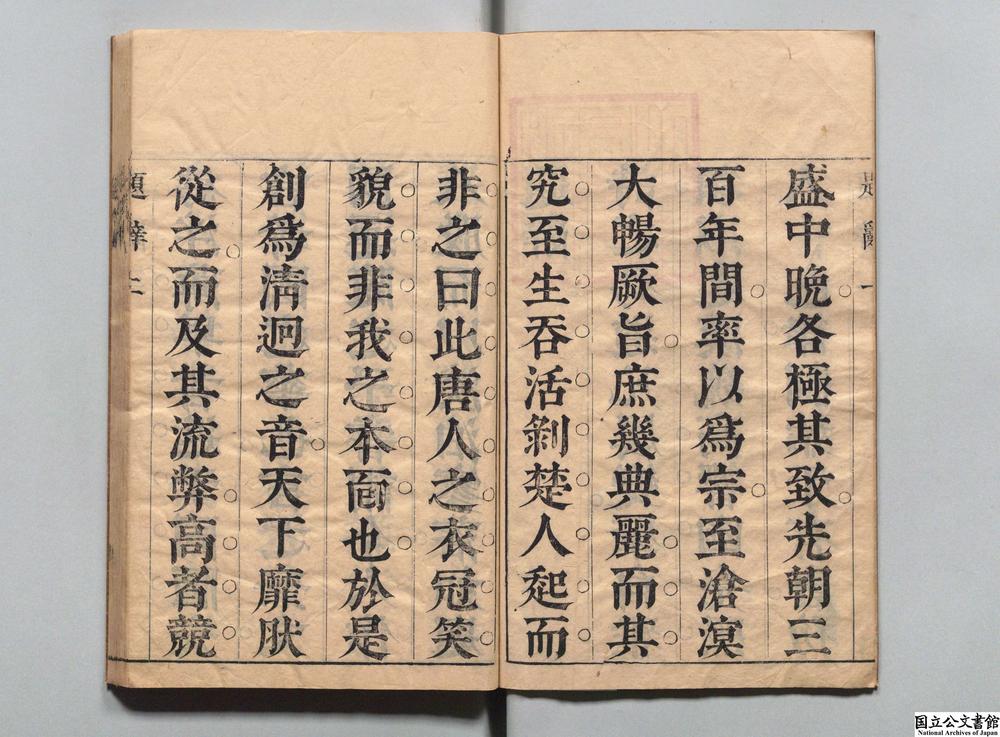 題辭一
盛中晩各極其致先朝三
百年間率以爲宗至滄溟
大暢厥旨庶幾典麗而其
究至生吞活剝楚人起而
非之曰此唐人之衣冠笑
貌而非我之本面也於是
創爲淸迥之音天下靡肰
從之而及其流弊高者競
題辭二
国立公文書館
National Archives of Japan